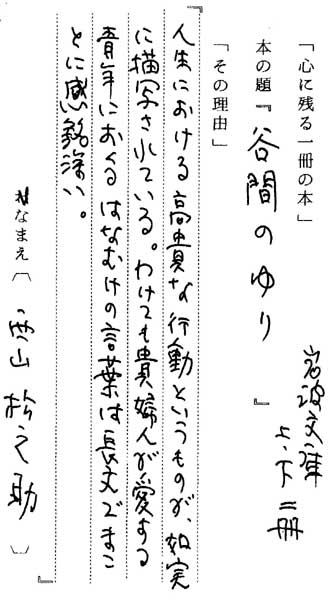 「心に残る一冊の本」
本の題『谷間のゆり』
岩波文庫
上、下 二冊
「その理由」
『人生における高貴な行動というものが、如実
に描写されている。わけても貴婦人が愛する
青年におくるはなむけの言葉は長文でまこ
とに感銘深い。
おなまえ（雲山 松之助）』